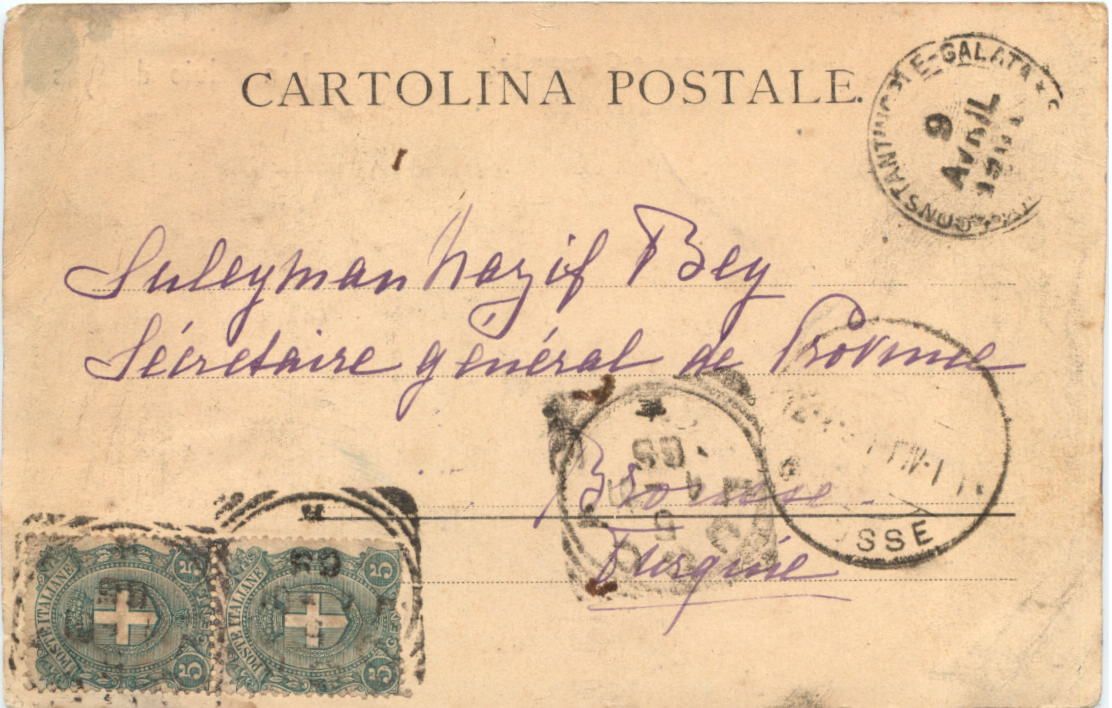 CARTOLINA POSTALE.
CONSTANTINOPLE-GALATA
9
AVRIL
Suleyman Nazif Bey
Sécretaire général de Province
Brousse
Turquie
5
4
SSE
POSTE ITALIANE
5
5
POSTE ITALIANE
5
5